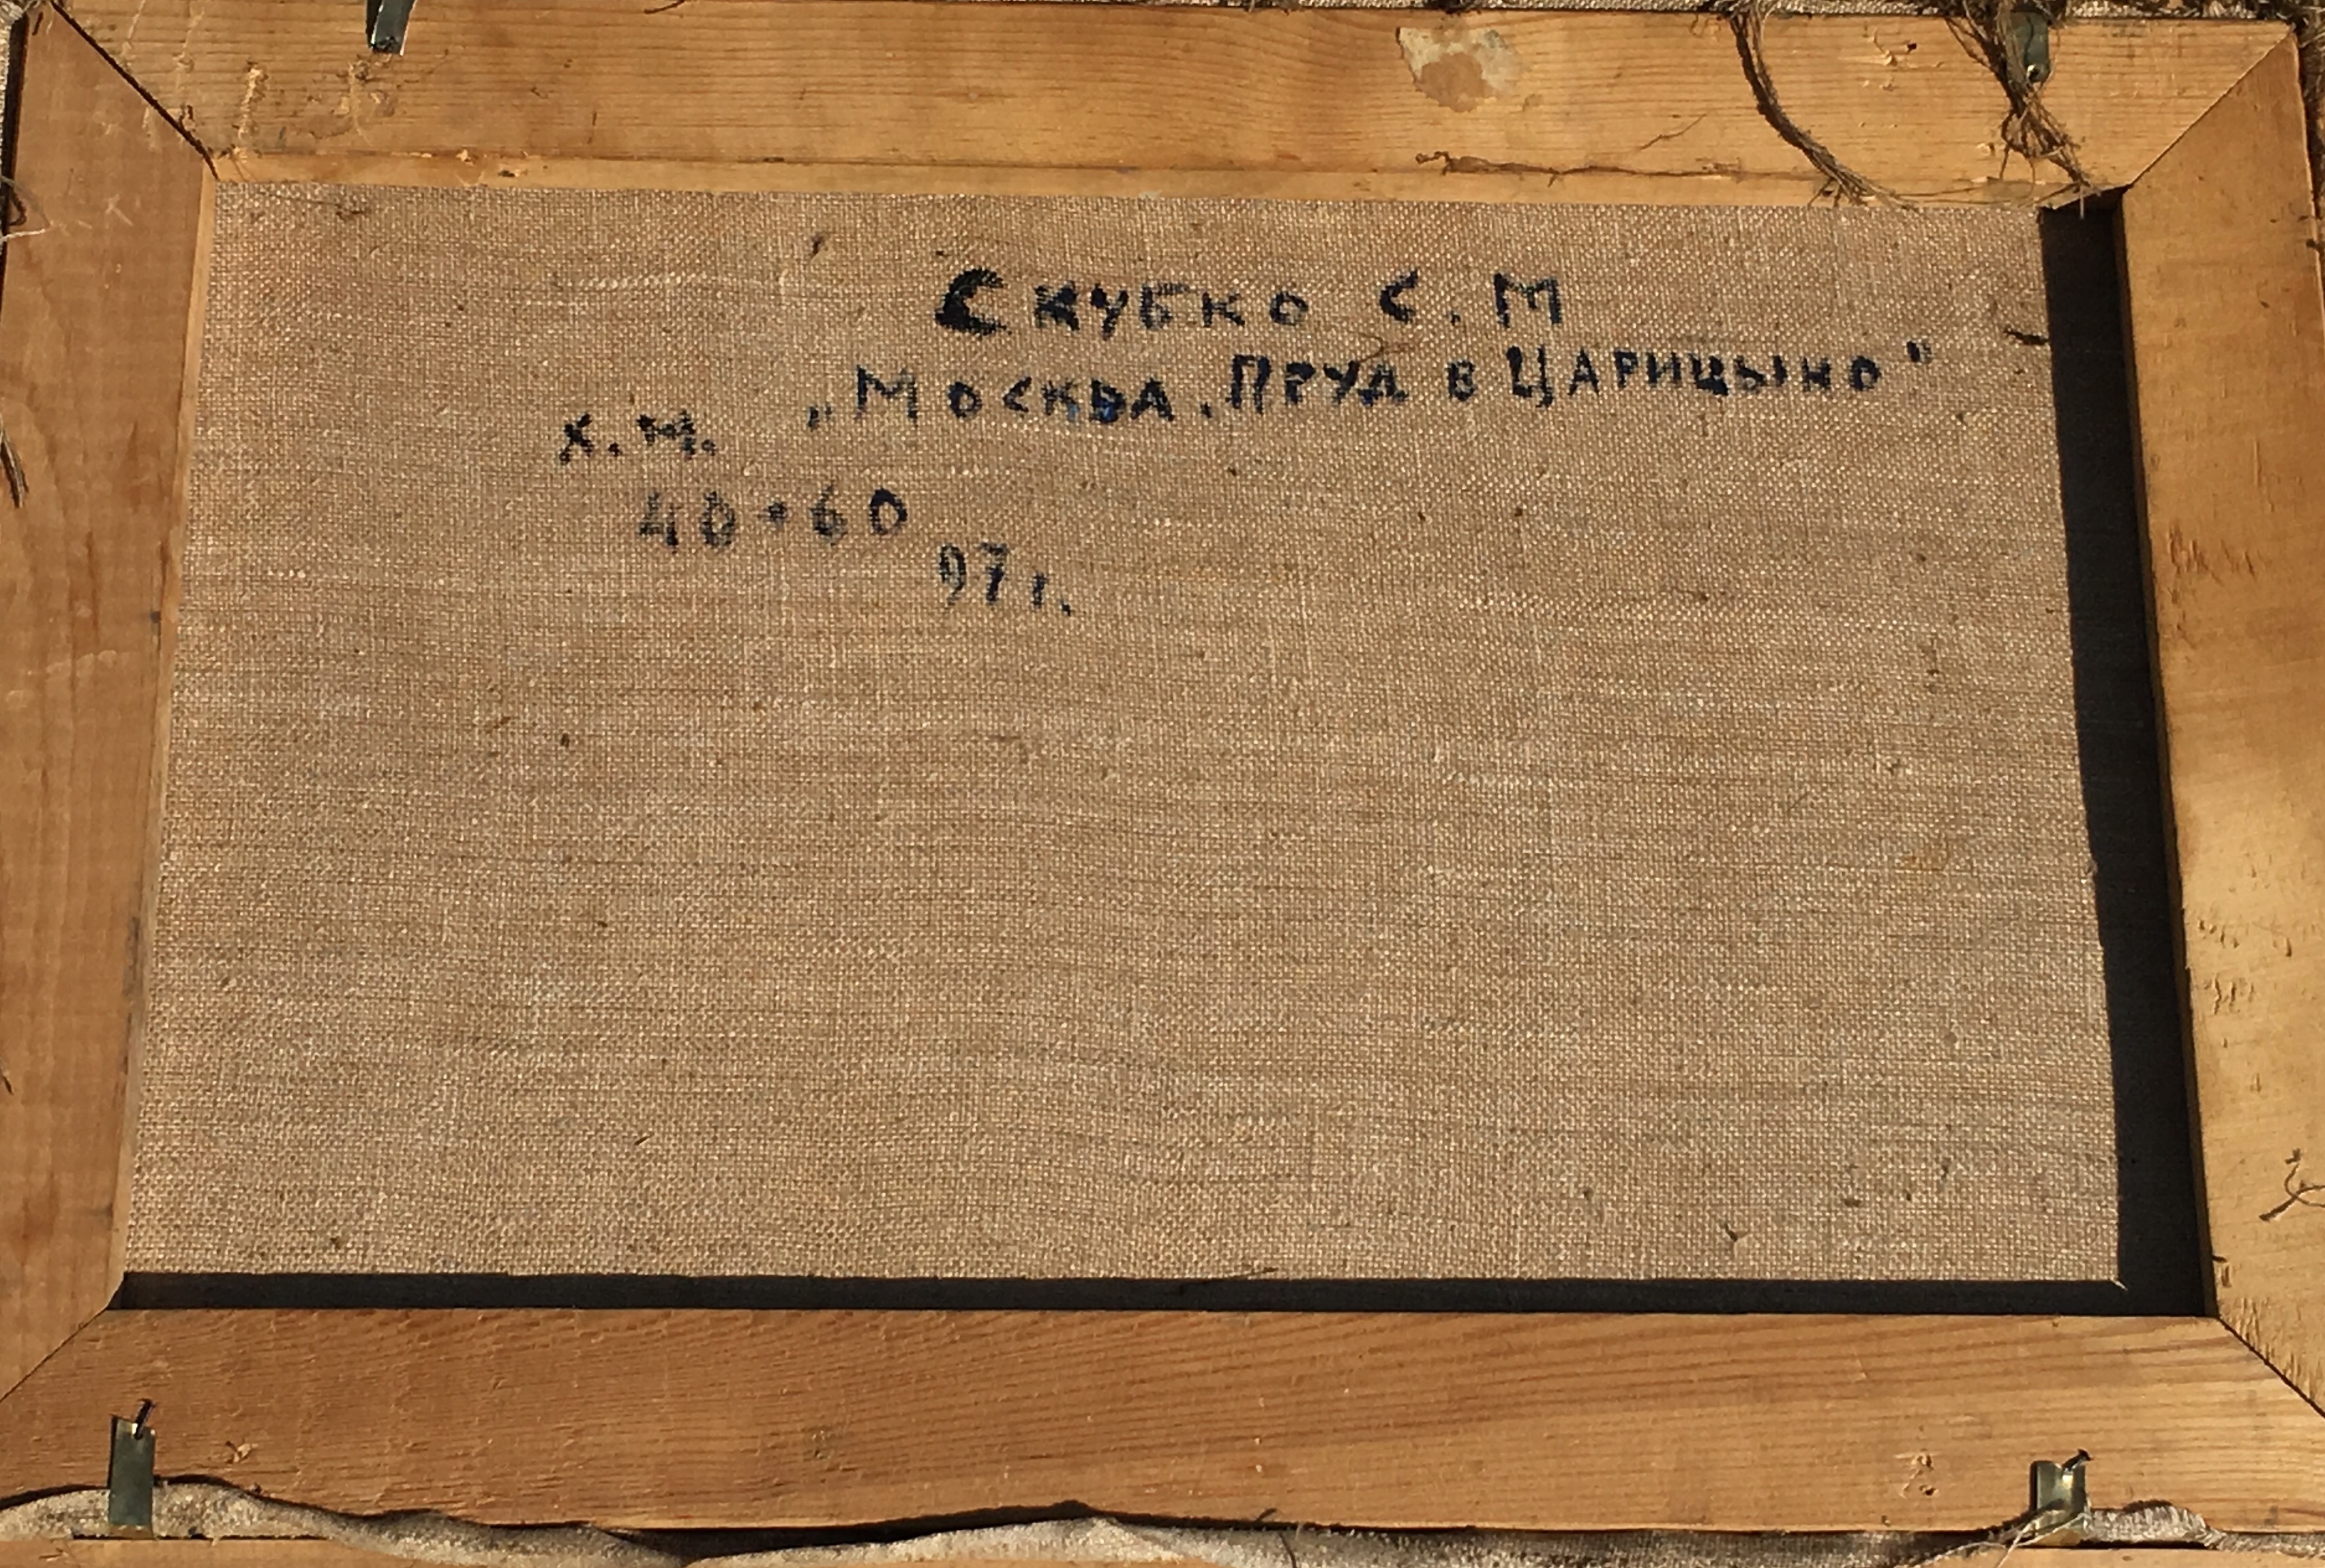 Скубко С. М
„Москва. Пруд в Царицыно"
х. м.
40 • 60
97 г.